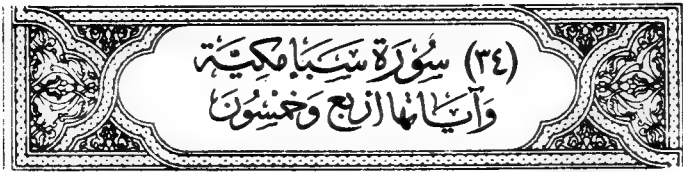 (٣٤) سُورَة سَبَإ مكِيَّة
وَآيَاتها ارْبَع وَخَمْسُونَ